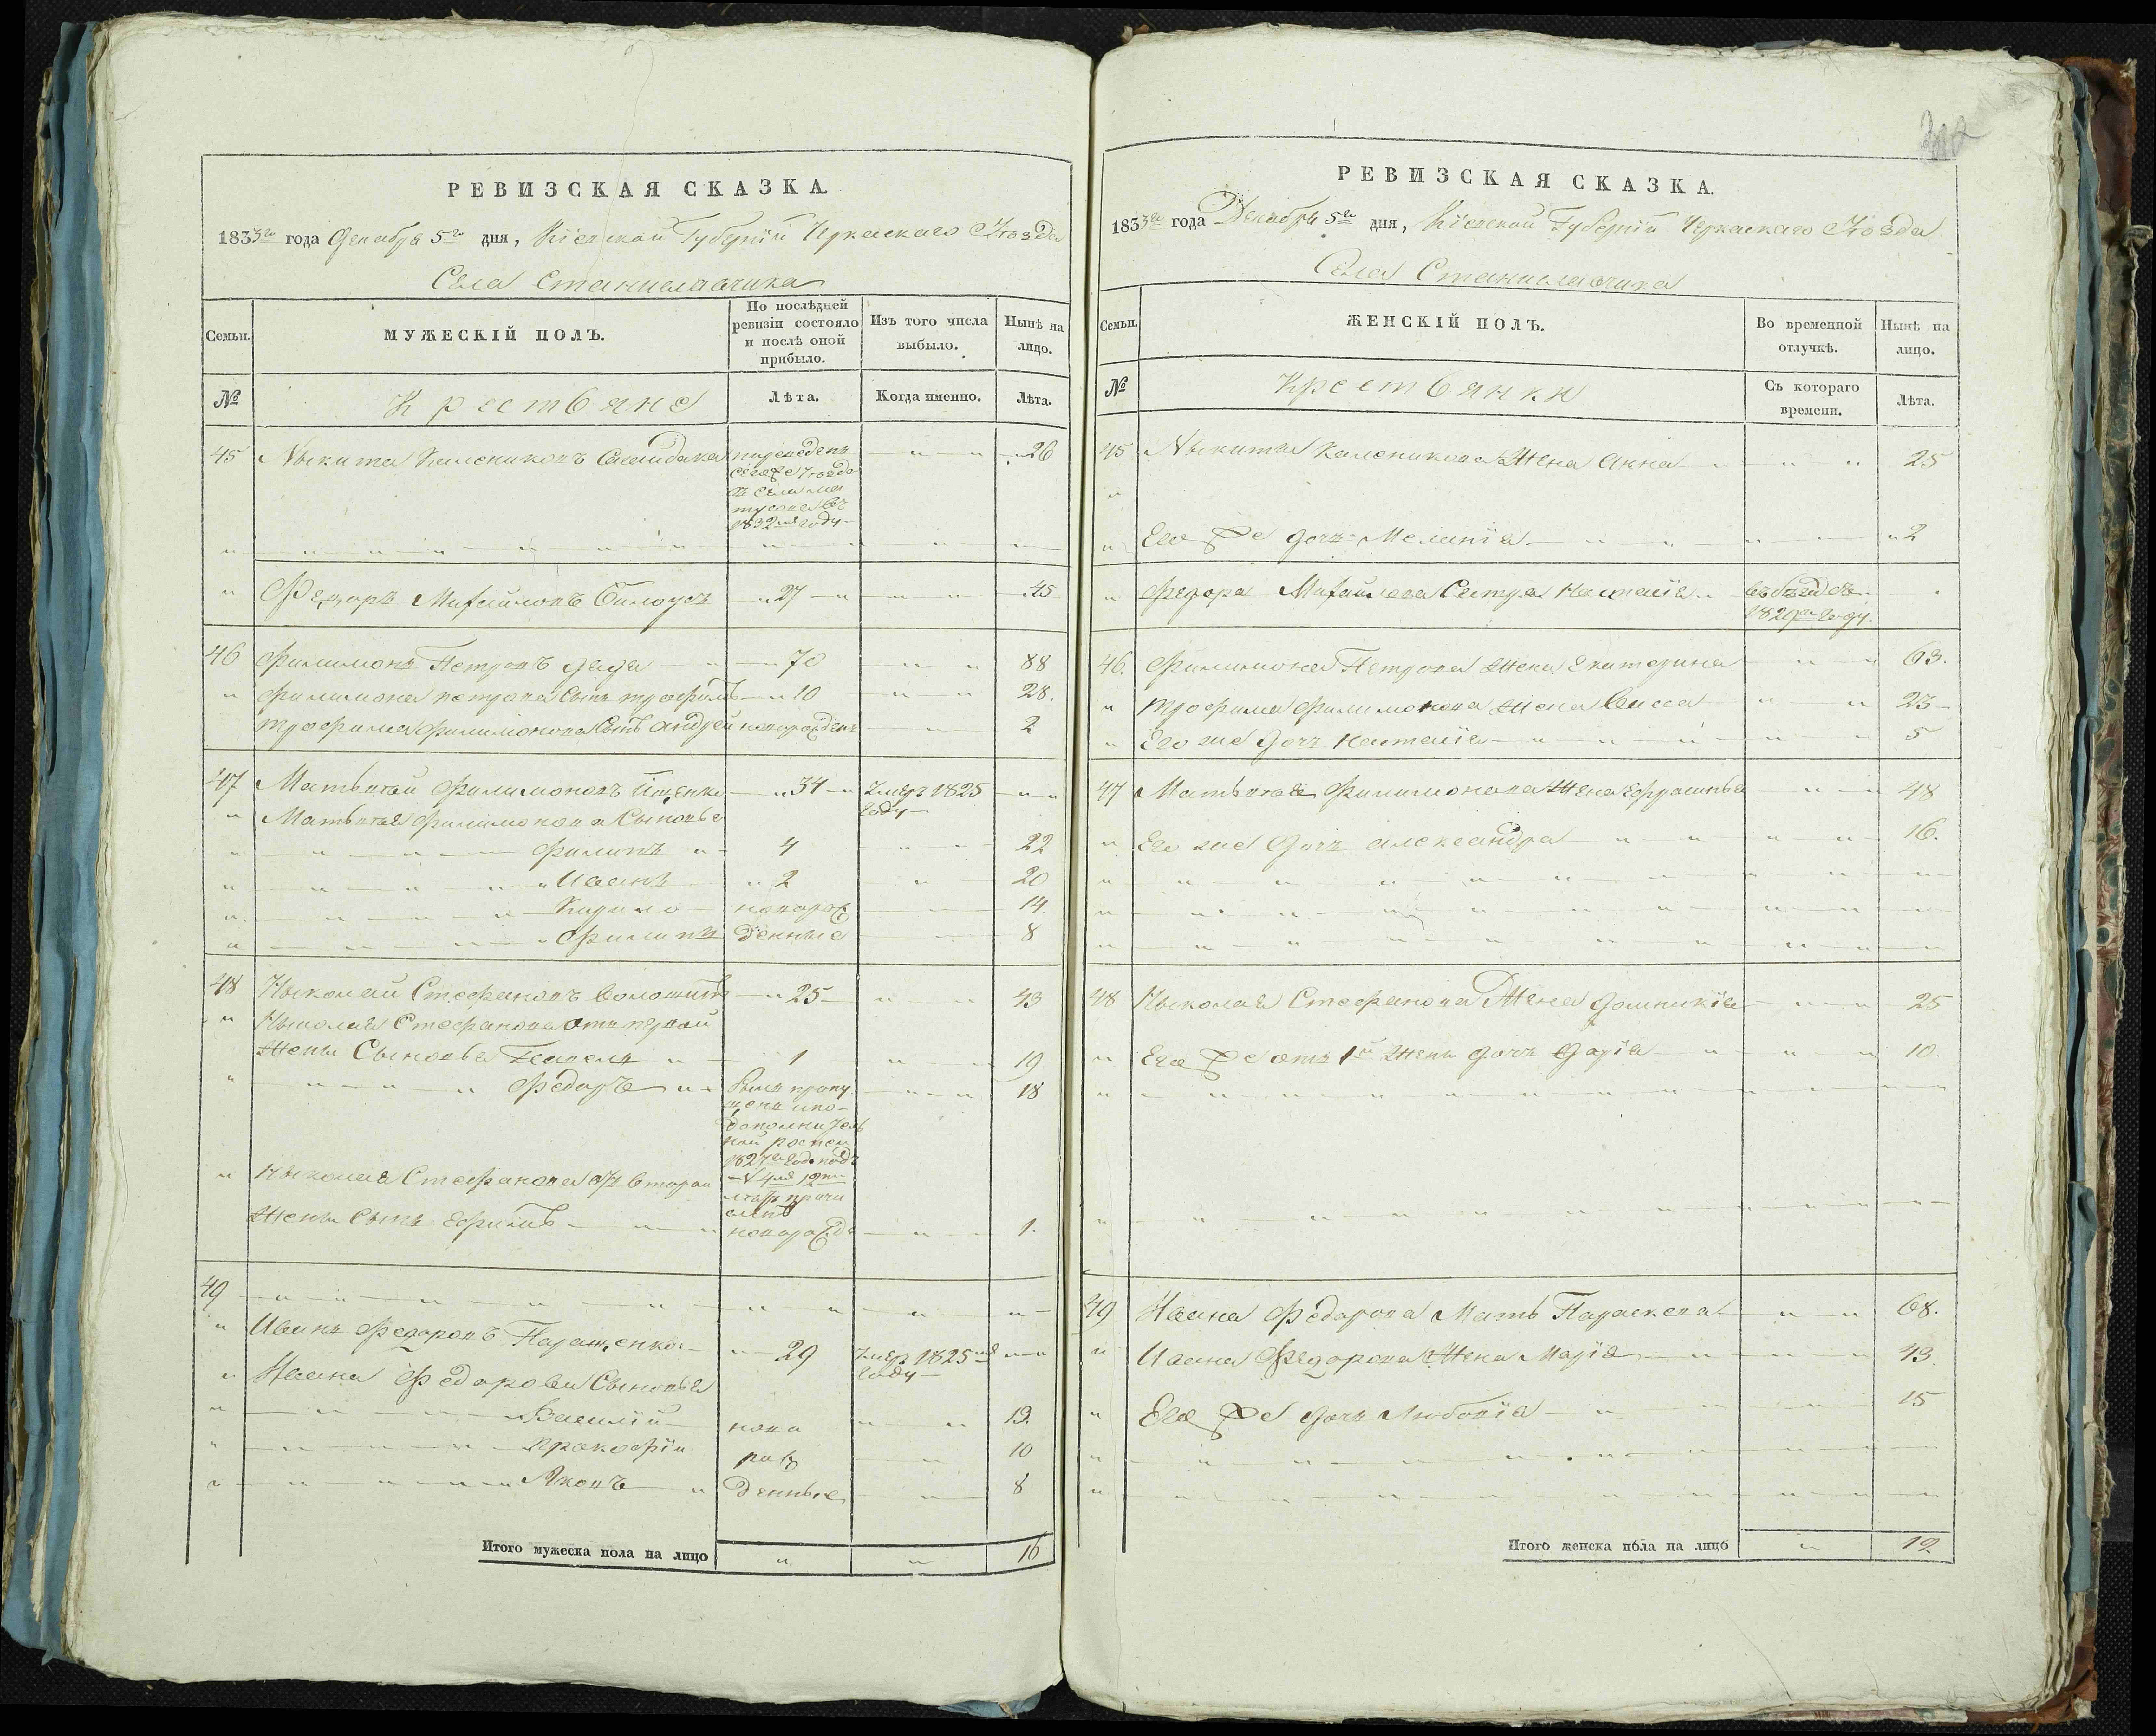 РЕВИЗСКАЯ СКАЗКА.
1833го года Декабря 5го дня, Кіевской Губерніи Черкаскаго Уѣзда
Села Станиславчика
Семьи.
МУЖЕСКІЙ ПОЛЪ.
По послѣдней ревизіи состояло и послѣ оной прибыло.
Изъ того числа выбыло.
Нынѣ на лицо.
№
Крестьяне
Лѣта.
Когда именно.
Лѣта.
45 Никита Калениковъ переведенъ 26
сего же Уѣзда
въ
1832мъ году
Федоръ Михайловъ Билоусъ 27 45
46 Филимонъ Петровъ 70 88
Филимона Петрова Сынъ Трофимъ 10 28.
Трофима Филимонова Сынъ Андрей новорожденъ 2
47 Матьвей Филимоновъ Іщенко 34 Умеръ 1825
году
Матьвея Филимонова Сыновья
Филипъ 4 22
Иванъ 2 20
Кирило новорож 14.
Филипъ денные 8
48 Николай Стефановъ 25 43
Николая Стефанова отъ первой
Жены Сыновья 1 19
Федоръ былъ пропу 18
щенъ и по
дополнитель
ной
1827го года подъ
лѣтъ причи
сленъ
Николая Стефанова отъ второй
Жены Сынъ Ефимъ новорожде 1.
49
Иванъ Федоровъ Паращенко 29 Умеръ 1825мъ
году
Ивана Федорова Сыновья
Василій ново 13.
Прокофій рож 10
Яковъ денные 8
Итого мужеска пола на лицо 16
РЕВИЗСКАЯ СКАЗКА.
1833го года Декабря 5го дня, Кіевской Губерніи Черкаскаго Уѣзда
Села Станиславчика
Семьи.
ЖЕНСКІЙ ПОЛЪ.
Во временной отлучкѣ.
Нынѣ на лицо.
№
Крестьянки
Съ котораго времени.
Лѣта.
45 Никиты Каленикова Жена Анна 25
Его же дочь Меланія 2
Федора Михайлова Сестра Настасія въ бѣгахъ
1829го году.
46. Филимона Петрова Жена Екатерина 63.
Трофима Филимонова Жена Васса 23
Его же дочь Настасія 5
47 Матьвея Филимонова Жена Ефросинья 48
Его же дочь Александра 16.
48 Николая Стефанова Жена Домникія 25
Его же отъ 1й Жены дочь Дарія 10.
49 Ивана Федорова Мать Параскева 68.
Ивана Федорова Жена Марія 43.
Его же дочь Любовія 15
Итого женска пола на лицо 12